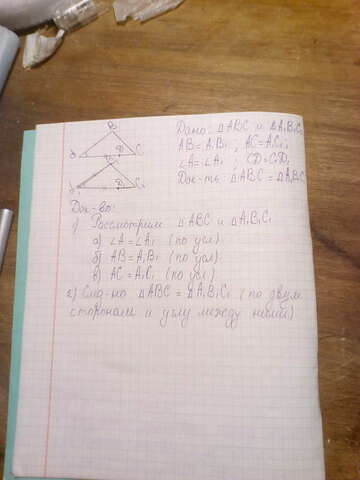 B
A D C
B₁
A₁ D₁ C₁
Дано: ΔABC и ΔA₁B₁C₁
AB=A₁B₁ ; AC=A₁C₁;
∠A=∠A₁ ; CD=C₁D₁
Док-ть: ΔABC=ΔA₁B₁C₁
Док-во:
1) Рассмотрим ΔABC и ΔA₁B₁C₁
а) ∠A=∠A₁ (по усл)
б) AB=A₁B₁ (по усл)
в) AC=A₁C₁ (по усл)
г) След-но ΔABC = ΔA₁B₁C₁ (по двум
сторонам и углу между ними)